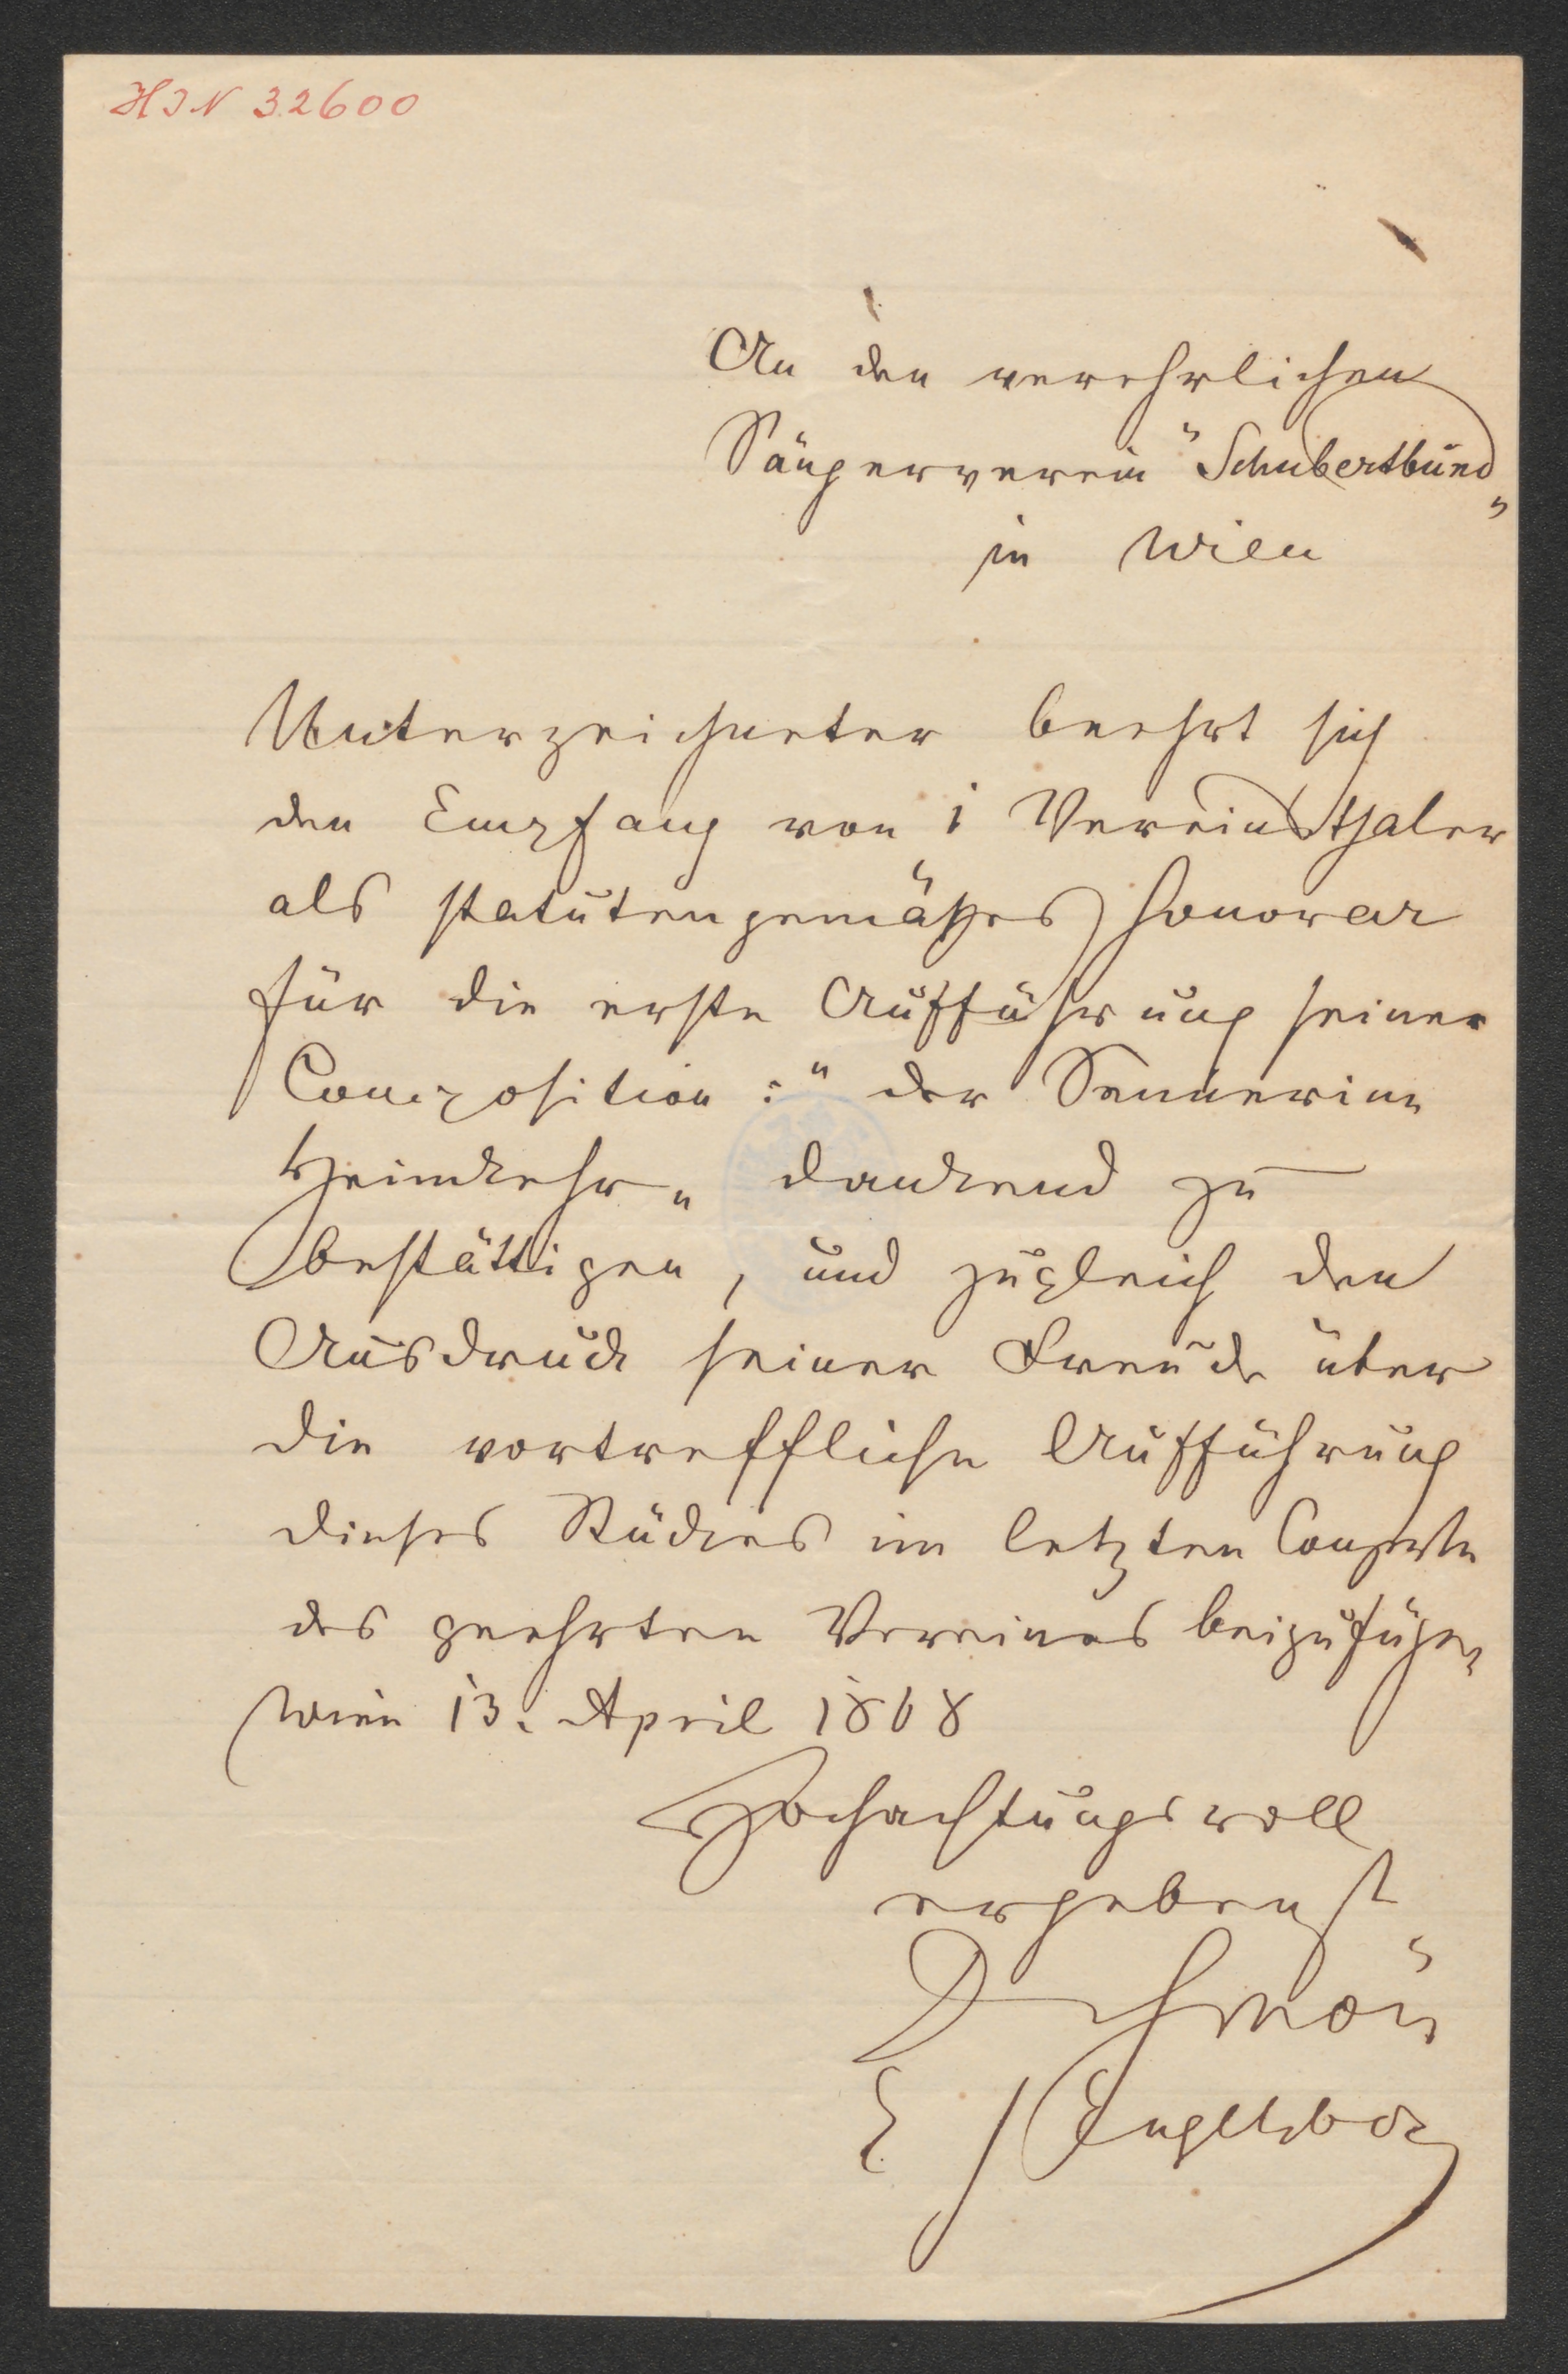 HIN 32600
An den verehrlichen
Sängerverein "Schubertbund"
in Wien
Unterzeichneter beehrt sich
den Empfang von 1 Vereinsthaler
als statutengemäßes Honorar
für die erste Aufführung seiner
Composition: "der Sennerinn
Heimkehr" dankend zu
bestättigen, und zugleich den
Ausdruck seiner Freude über
die vortreffliche Aufführung
dieses Stückes im letzten Conzerte
des geehrten Vereines beizufügen
Wien 13. April 1868
Hochachtungsvoll
ergebenst
E S Engelsberg